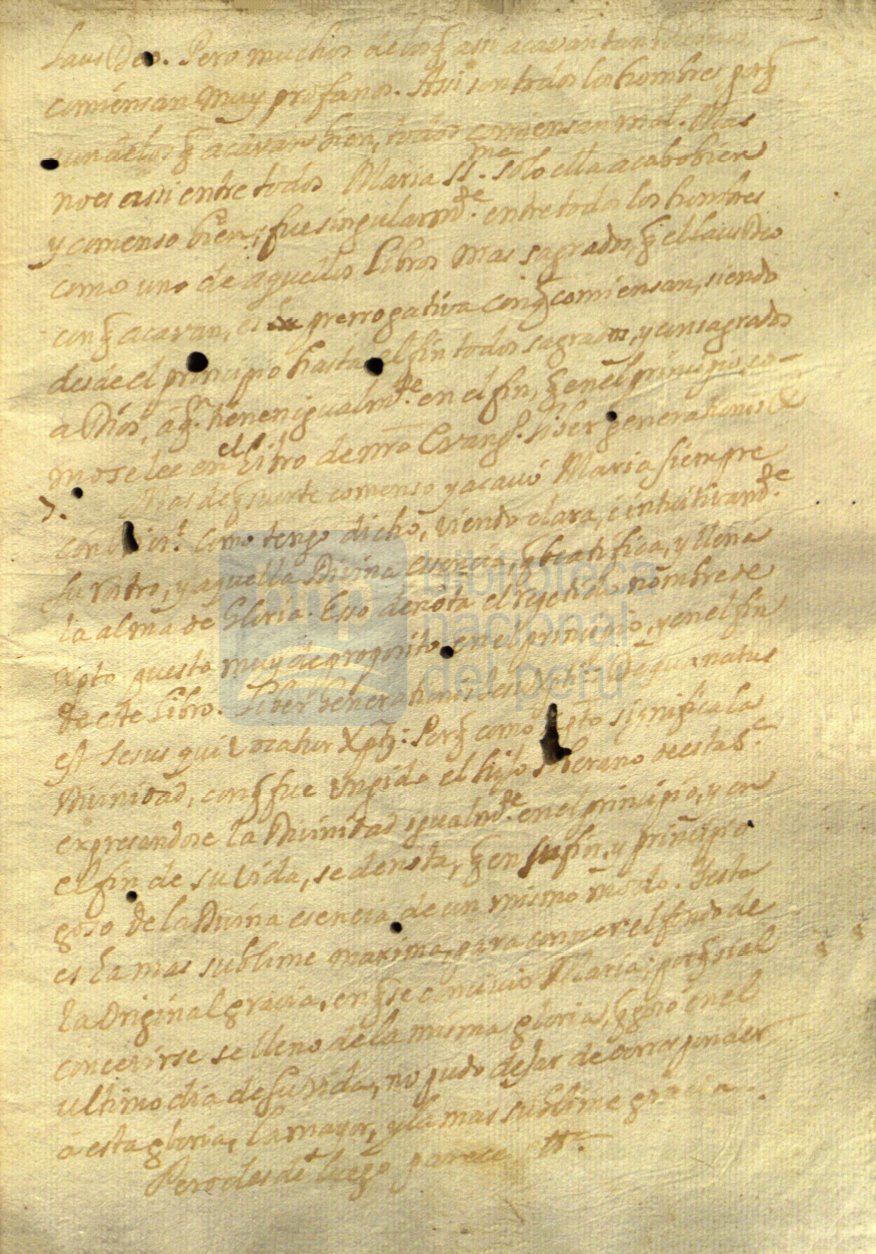 Laus Deo. Pero muchos de los q̃ assi acavan tan
comiensan muy profanos. Assi son todos los hombres, porq̃
aun de los q̃ acavan bien, todos comiensan mal. Mas
no es assi entre todos Maria SS.ma solo ella acabo bien
y comenso bien, y fue singularmte. entre todos los hombres
como uno de aquellos libros mas sagrados, q̃ el laus Deo
con q̃ acavan, es prerrogativa con q̃ comiensan, siendo
desde el principio hasta el fin todos sagrados, y consagrados
a Dios, a qn. tienen igualmte. en el fin, q̃ en el principio, co-
mo se lee en el Libro de nro Evangº. Liber generationis &
7.
Dios de q̃ suerte comenso y acavó Maria siempre
como tengo dicho, viendo clara, é intuitivamte.
su rostro, y aquella Divina esencia, q̃ beatifica, y llena
la alma de Gloria. Esso denota el repetido nombre de
Xpto puesto muy de proposito en el principio, y en el fin
de este Libro. Liber Generationis Iesu Xpti: De qua natus
est Jesus qui vocatur Xptus: Porq̃ como Xpto significa la
Divinidad, con q̃ fue ungido el hijo soberano de esta Sra.
expresandose la Divinidad igualmte. en el principio, y en
el fin de su vida, se denota, q̃ en su fin, y principio
goso de la Divina esencia de un mismo modo. Y esta
es la mas sublime maxima, para conocer el fondo de
la Original gracia, en q̃ se concivio Maria; porq̃ si al
concevirse se lleno de la misma gloria, q̃ gosó en el
ultimo dia de su vida, no pudo dejar de corresponder
á esta gloria, la mayor, y la mas sublime gracia.
Pero desde luego parece
biblioteca
nacional
del perú
bnp